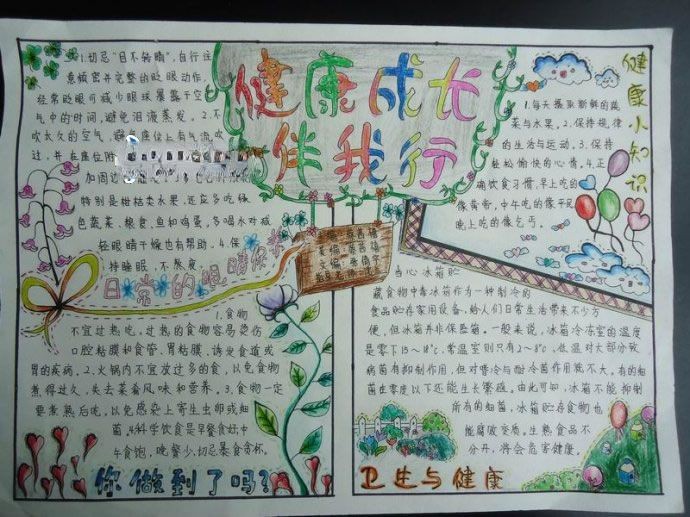 健康成长
伴我行
1.切忌“目不转睛”,自行注
意频密并完整的眨眼动作,
经常眨眼可减少眼球暴露于空
气中的时间,避免泪液蒸发。2.不
吹太久的空气,避免座位上有气流吹
过,并在座位附
加周边
特别是柑桔类水果,还应多吃绿
色蔬菜、粮食、鱼和鸡蛋。多喝水对减
轻眼睛干燥也有帮助。4.保
持睡眠,不熬夜。
日常的眼睛保养
1.食物
不宜过热吃。过热的食物容易烫伤
口腔粘膜和食管、胃粘膜,诱发食道或
胃的疾病。2.火锅内不宜放过多的食,以免食物
煮得过久,失去菜肴风味和营养。3.食物一定
要煮熟后吃,以免感染上寄生虫卵或细
菌。4.科学饮食是早餐食好,中
午食饱,晚餐少,切忌暴食贪杯。
你做到了吗?
健康小知识
1.每天摄取新鲜的蔬
菜与水果。2.保持规律
的生活与运动。3.保持
轻松愉快的心情。4.正
确饮食习惯,早上吃的
像皇帝,中午吃的像平民,
晚上吃的像乞丐。
当心冰箱贮
藏食物中毒冰箱作为一种制冷的
食品贮存家用设备,给人们日常生活带来不少方
便,但冰箱并非保险箱。一般来说,冰箱冷冻室的温度
是零下15~18℃,常温室则只有2~8℃,低温对大部分致
病菌有抑制作用,但对嗜冷与耐冷菌作用就不大。有的细
菌在零度以下还能生长繁殖。由此可知,冰箱不能抑制
所有的细菌,冰箱贮存食物也
能腐败变质。生熟食品不
分开,将会危害健康。
卫生与健康